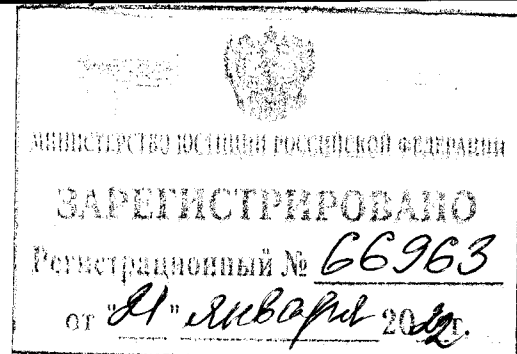 МИНИСТЕРСТВО ЮСТИЦИИ РОССИЙСКОЙ ФЕДЕРАЦИИ
ЗАРЕГИСТРИРОВАНО
Регистрационный № 66963
от "21" января 2022г.